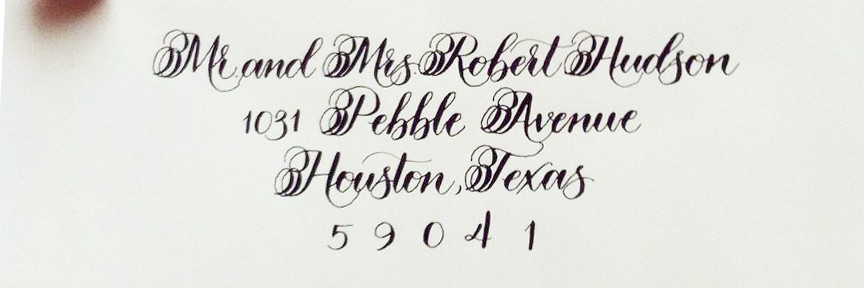 Mr and Mrs Robert Hudson
1031 Pebble Avenue
Houston, Texas
59041